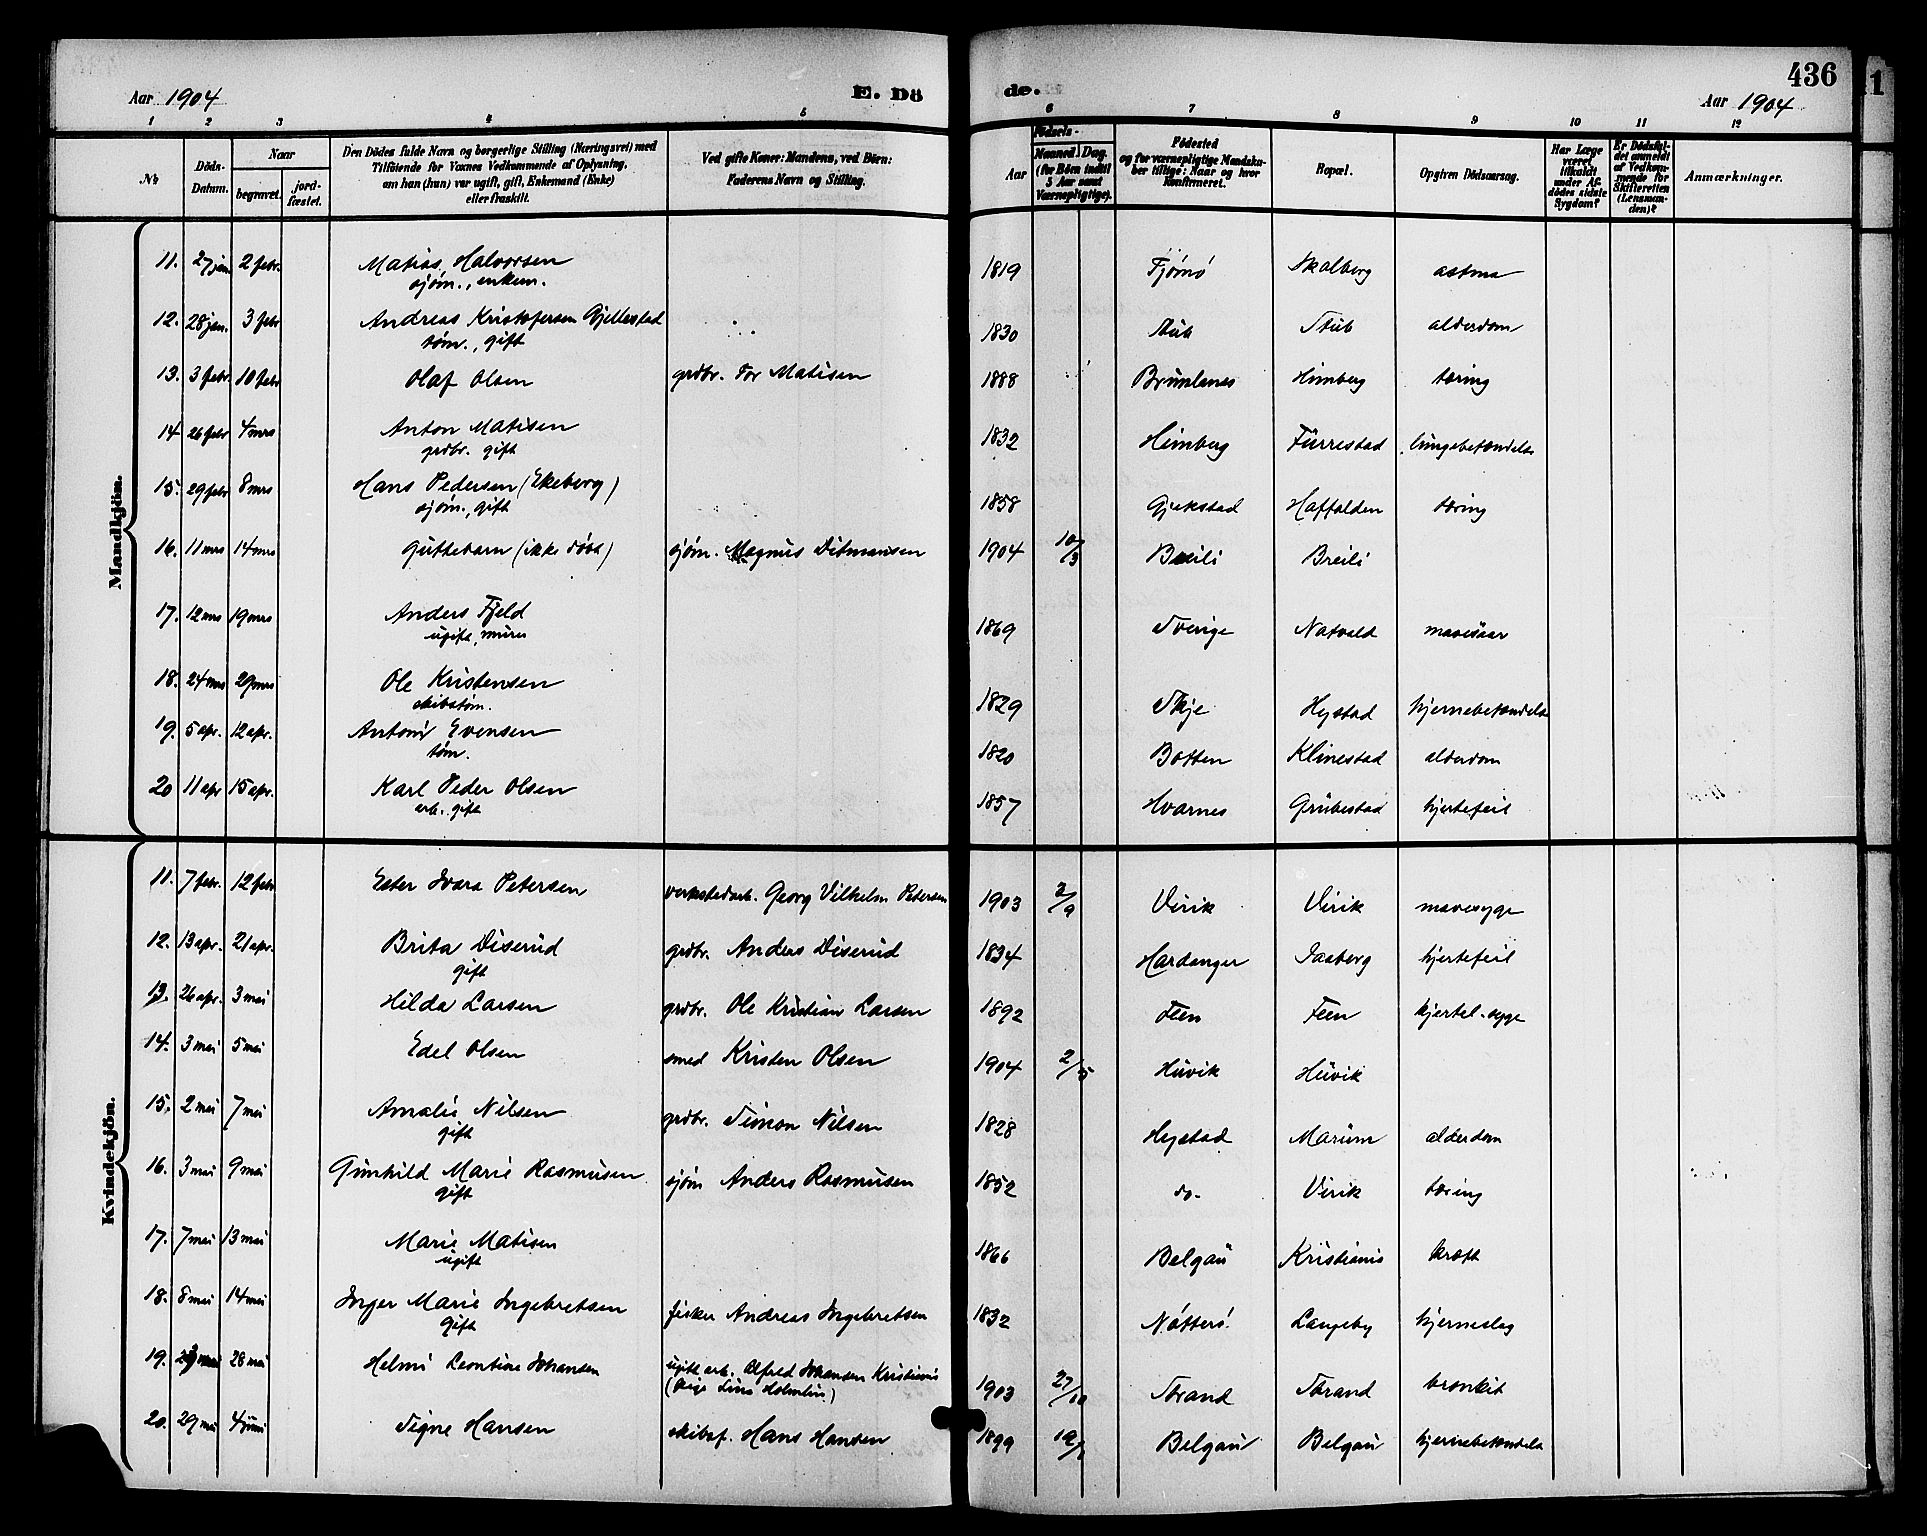 436
Aar 1904 E. Dö de. Aar 1904
1 2 3 4 5 6 7 8 9 10 11 12
№ Döds-Datum. Naar begravet. jord-fæstet. Den Dödes fulde Navn og borgerlige Stilling (Næringsvei) med Tilföiende for Voxnes Vedkommende af Oplysning, om han (hun) var ugift, gift, Enkemand (Enke) eller fraskilt. Ved gifte Koner: Mandens, ved Börn: Faderens Navn og Stilling. Aar Födsels- Maaned. Dag. (for Börn indtil 5 Aar samt Værnepligtige). Födested og for værnepligtige Mandskaber tillige: Naar og hvor Konfirmeret. Bopæl. Opgiven Dödsaarsag. Har Læge været tilkaldt under Afdödes sidste Sygdom? Er Dödsfaldet anmeldt af Vedkommende for Skifteretten (Lensmanden)? Anmærkninger.
Mandkjön.
11. 27 jan. 2 febr. Matias Halvorsen 1819 Tjømø Skalberg astma
sjøm., enkem.
12. 28 jan. 3 febr Andreas Kristofersen Gjellestad 1830 Stub Stub alderdom
tøm., gift
13. 3 febr. 10 febr Olaf Olsen grdbr. Tor Matisen 1888 Brunlanes Himberg tæring
14 26 febr 4 mrs Anton Matisen 1832 Himberg Furrestad lungebetændelse
grdbr. gift
15. 29 febr 8 mrs Hans Pedersen (Ekeberg) 1858 Gjekstad Haffalden tæring
sjøm., gift
16. 11 mrs 14 mrs Guttebarn (ikke døbt) sjøm. Magnus Ditmansen 1904 10/3 Breili Breili
17. 12 mrs 19 mrs Anders Fjeld 1869 Sverige Natvald mavesaar
ugift, murer
18. 24 mrs 29 mrs Ole Kristensen 1829 Skje Hystad hjernebetændelse
skibstøm.
19. 5 apr. 12 apr. Anton Evensen 1820 Botten Klinestad alderdom
tøm.
20 11 apr 15 apr. Karl Peder Olsen 1857 Hvarnes Grubestad hjertefeil
arb. gift
Kvindekjön.
11. 7 febr. 12 febr Ester Svara Petersen verkstedarb. Georg Vilhelm Petersen 1903 3/9 Virik Virik mavesyge
12. 13 apr. 21 apr. Brita Diserud grdbr. Anders Diserud 1834 Hardanger Saaberg hjertefeil
gift
13. 26 apr. 3 mai Hilda Larsen grdbr. Ole Kristian Larsen 1892 Feen Feen kjertel-syge
14. 3 mai 5 mai Edel Olsen smed Kristen Olsen 1904 2/5 Huvik Huvik
15. 2 mai 7 mai Amalie Nilsen grdbr. Simon Nilsen 1828 Hystad Marum alderdom
gift
16. 3 mai 9 mai Gunhild Marie Rasmusen sjøm Anders Rasmusen 1852 do- Virik tæring
gift
17. 7 mai 13 mai Marie Matisen 1866 Belgau Kristiania kræft
ugift
18. 8 mai 14 mai Inger Marie Ingebretsen fisker Andreas Ingebretsen 1832 Nøtterø Langeby hjerneslag
gift
19. 28 mai Helmi Leontine Johansen ugift arb. Alfred Johansen Kristiania 1903 27/10 Strand Strand bronkit
(Pige Lina Holmlin)
20. 29 mai 4 juni Signe Hansen skibsf. Hans Hansen 1899 Belgau Belgau hjernebetændelse